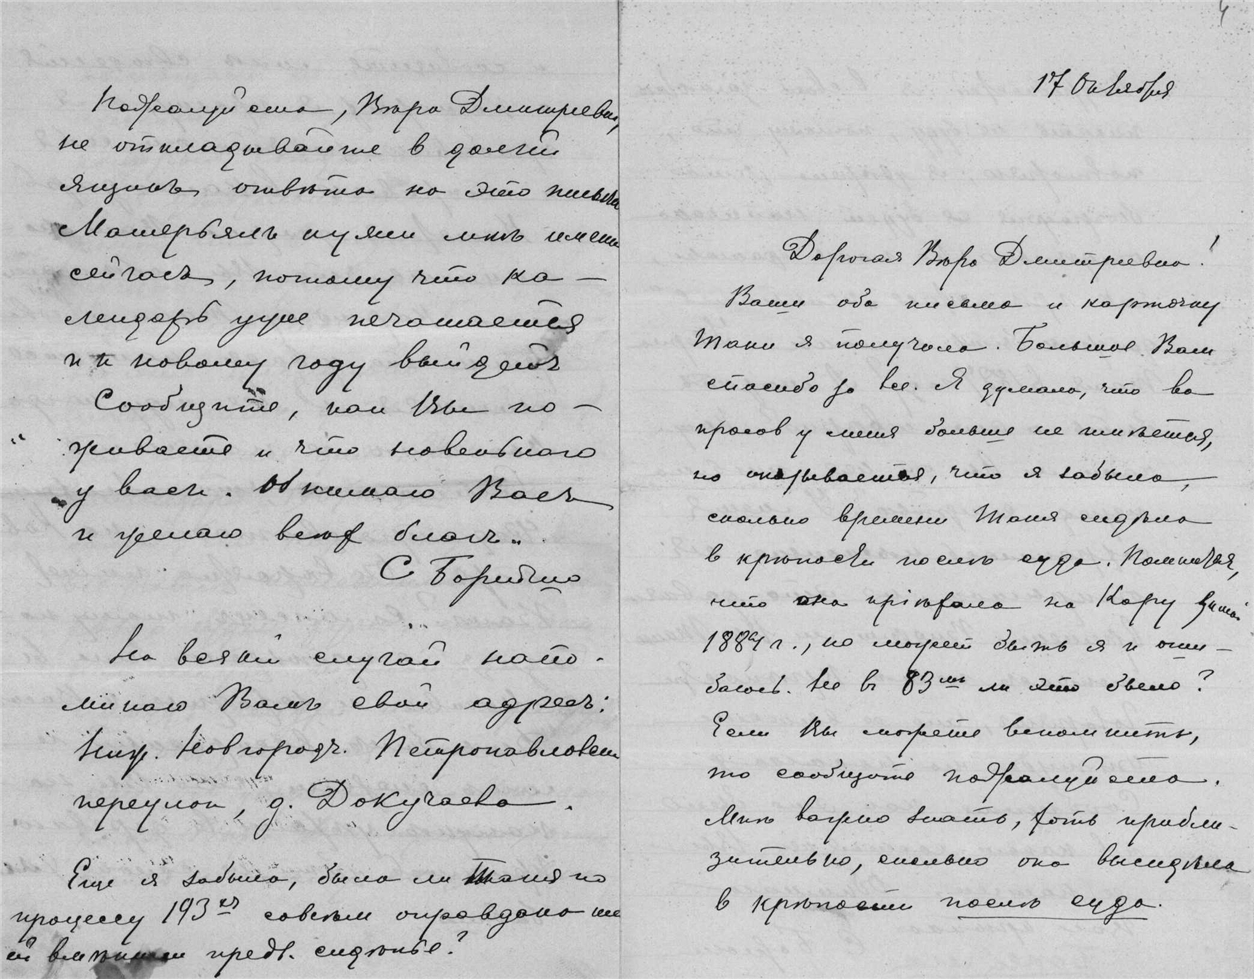 17 Октября
Дорогая Вѣра Дмитріевна!
Ваши оба письма и карточку
Тани я получила. Большое Вам
спасибо за все. Я думала, что во
просов у меня больше не имѣется,
но оказывается, что я забыла,
сколько времени Таня сидѣла
в крѣпости послѣ суда. Помнится,
что она пріѣхала на Кару зимой
1884 г., но может быть я и оши-
баюсь. Не въ 83мъ ли это было?
Если Вы можете вспомнить,
то сообщите пожалуйста.
Мнѣ важно знать, хоть прибли-
зительно, сколько она высидѣла
в крѣпости послѣ суда.
Пожалуйста, Вѣра Дмитріевна,
не откладывайте в долгій
ящикъ отвѣта на это письмо
Матерьялъ нужен мнѣ именно
сейчасъ, потому что ка-
лендарь уже печатается
и к новому году выйдетъ
Сообщите, как Вы по-
живаете и что новенького
у васъ. Обнимаю Васъ
и желаю всех благъ.
С Борейшо
На всякій случай напо-
минаю Вамъ свой адресъ:
Ниж. Новгородъ. Петропавловск
переулок, д. Докучаева.
Еще я забыла, была ли Таня по
процессу 193ех совсѣм оправдана
ей предв. сидѣнье?